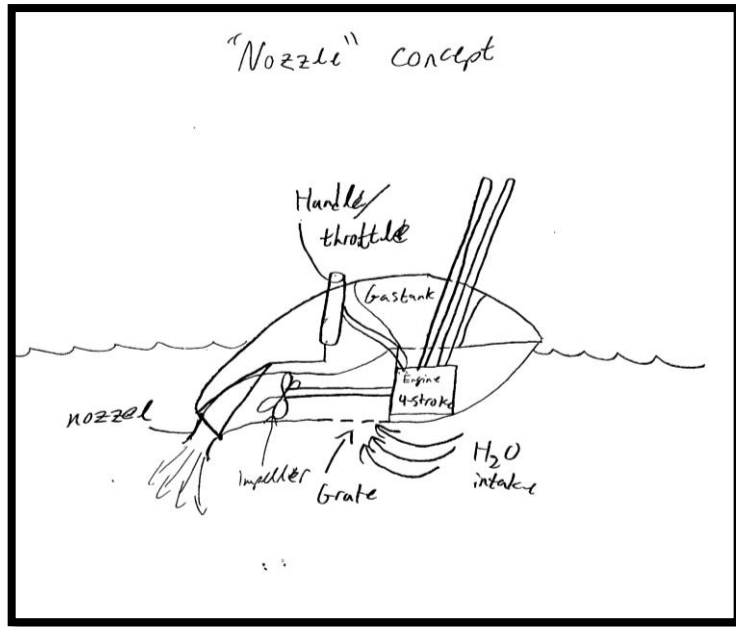 "Nozzle" concept
Handle/
throttle
Gastank
Engine
4-stroke
nozzel
Impeller
Grate
H₂O
intake